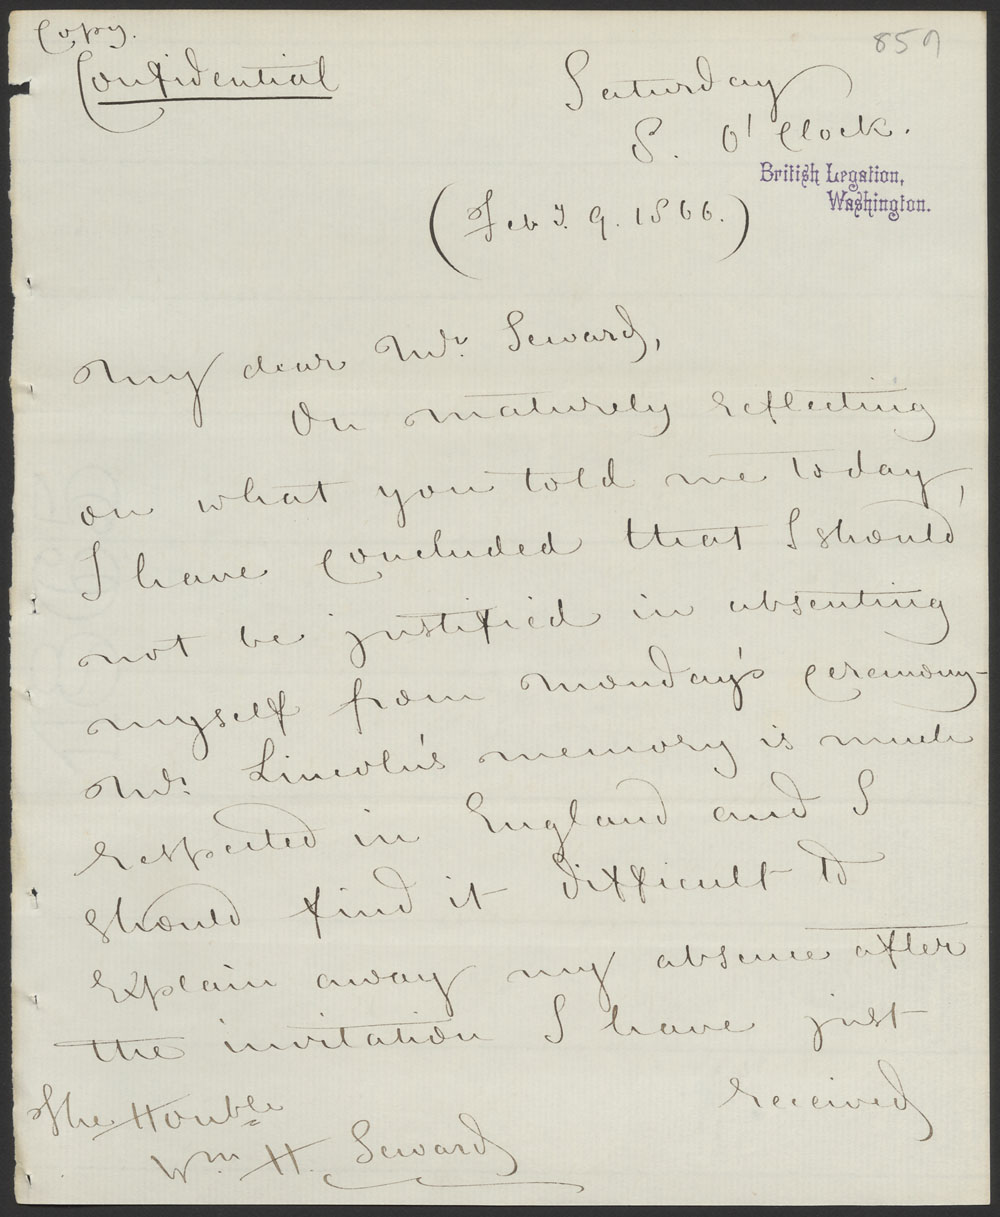 Copy.
859
Confidential
Saturday
8. O'Clock.
British Legation,
Washington.
(Feby. 9. 1866.)
My dear Mr. Seward,
On maturely reflecting
on what you told me today,
I have concluded that I should
not be justified in absenting
myself from Monday's ceremony-
Mr. Lincoln's memory is much
respected in England and I
should find it difficult to
explain away my absence after
the invitation I have just
received
The Honble
Wm H. Seward